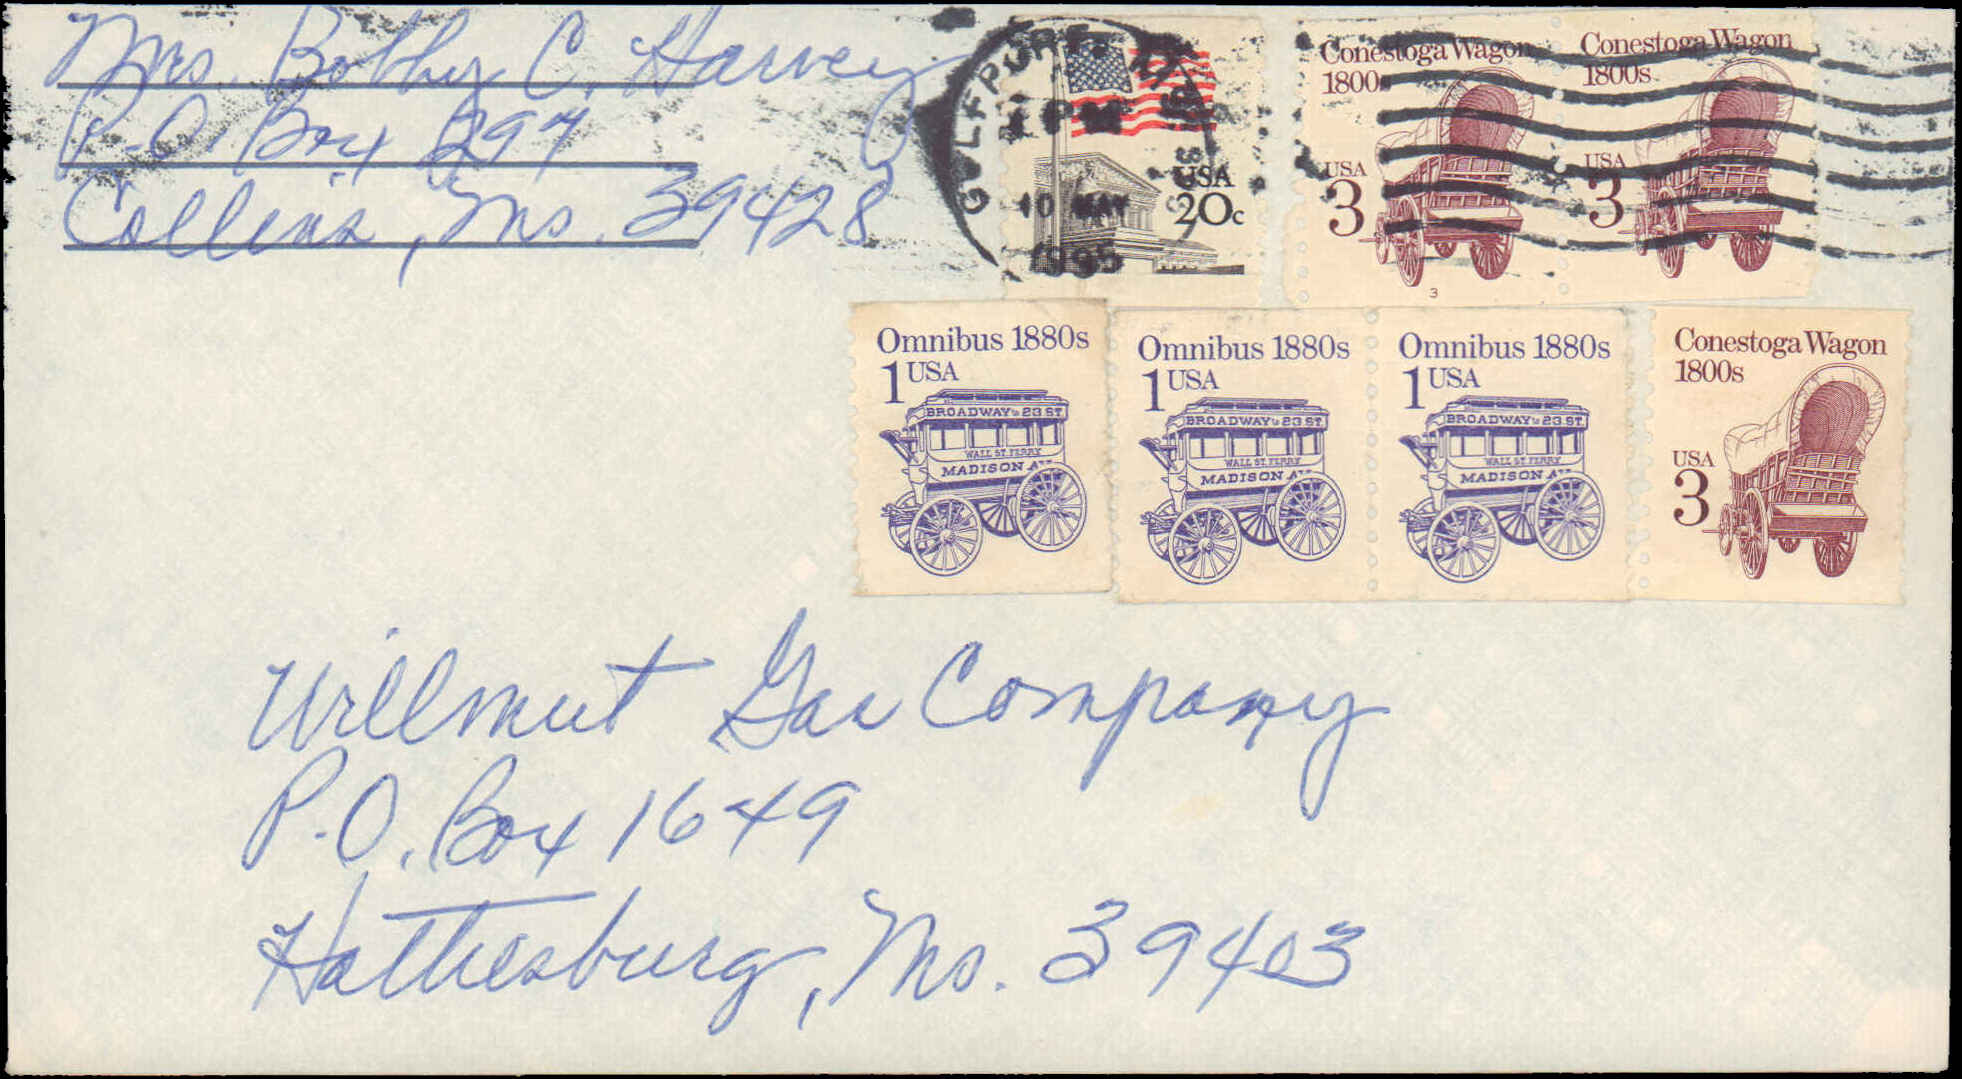 Mrs. Bobby C. Harvey
P.O. Box 297
Collins, Ms. 39428
GULFPORT, MS
PM
10 MAY
1995
USA
20c
Conestoga Wagon
1800s
USA
3
3
Conestoga Wagon
1800s
USA
3
Omnibus 1880s
1 USA
BROADWAY to 23 ST.
WALL ST. FERRY
MADISON AV.
Omnibus 1880s
1 USA
BROADWAY to 23 ST.
WALL ST. FERRY
MADISON A
Omnibus 1880s
1 USA
BROADWAY to 23 ST.
WALL ST. FERRY
MADISON AV.
Conestoga Wagon
1800s
USA
3
Willmut Gas Company
P.O. Box 1649
Hattiesburg, Ms. 39403